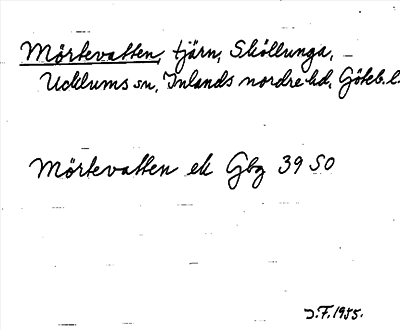 Mörtevatten, tjärn, Sköllunga,
Ucklums sn, Inlands nordre hd, Göteb. l.
Mörtevatten ek Gbg 39 SO
J.F. 1955.